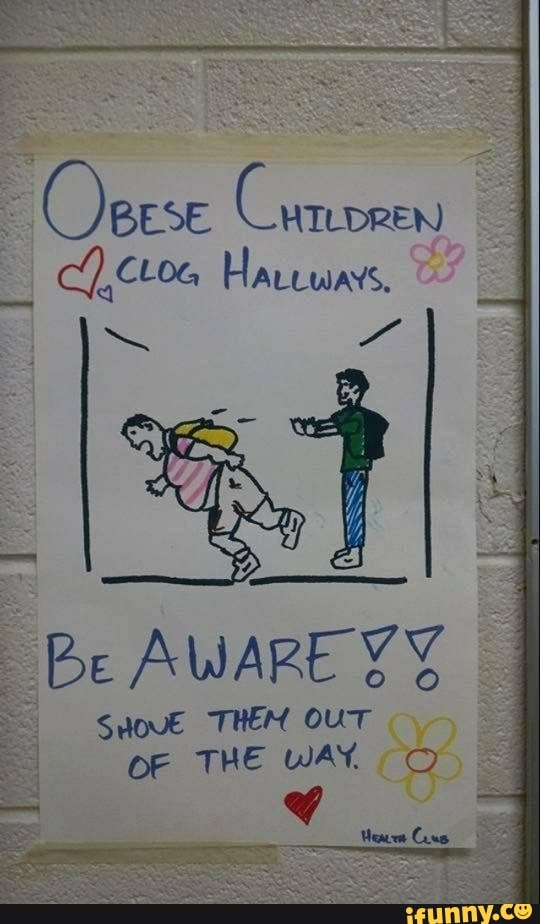 OBESE CHILDREN
CLOG HALLWAYS.
BE AWARE!!
SHOVE THEM OUT
OF THE WAY.
HEALTH CLUB
ifunny.co